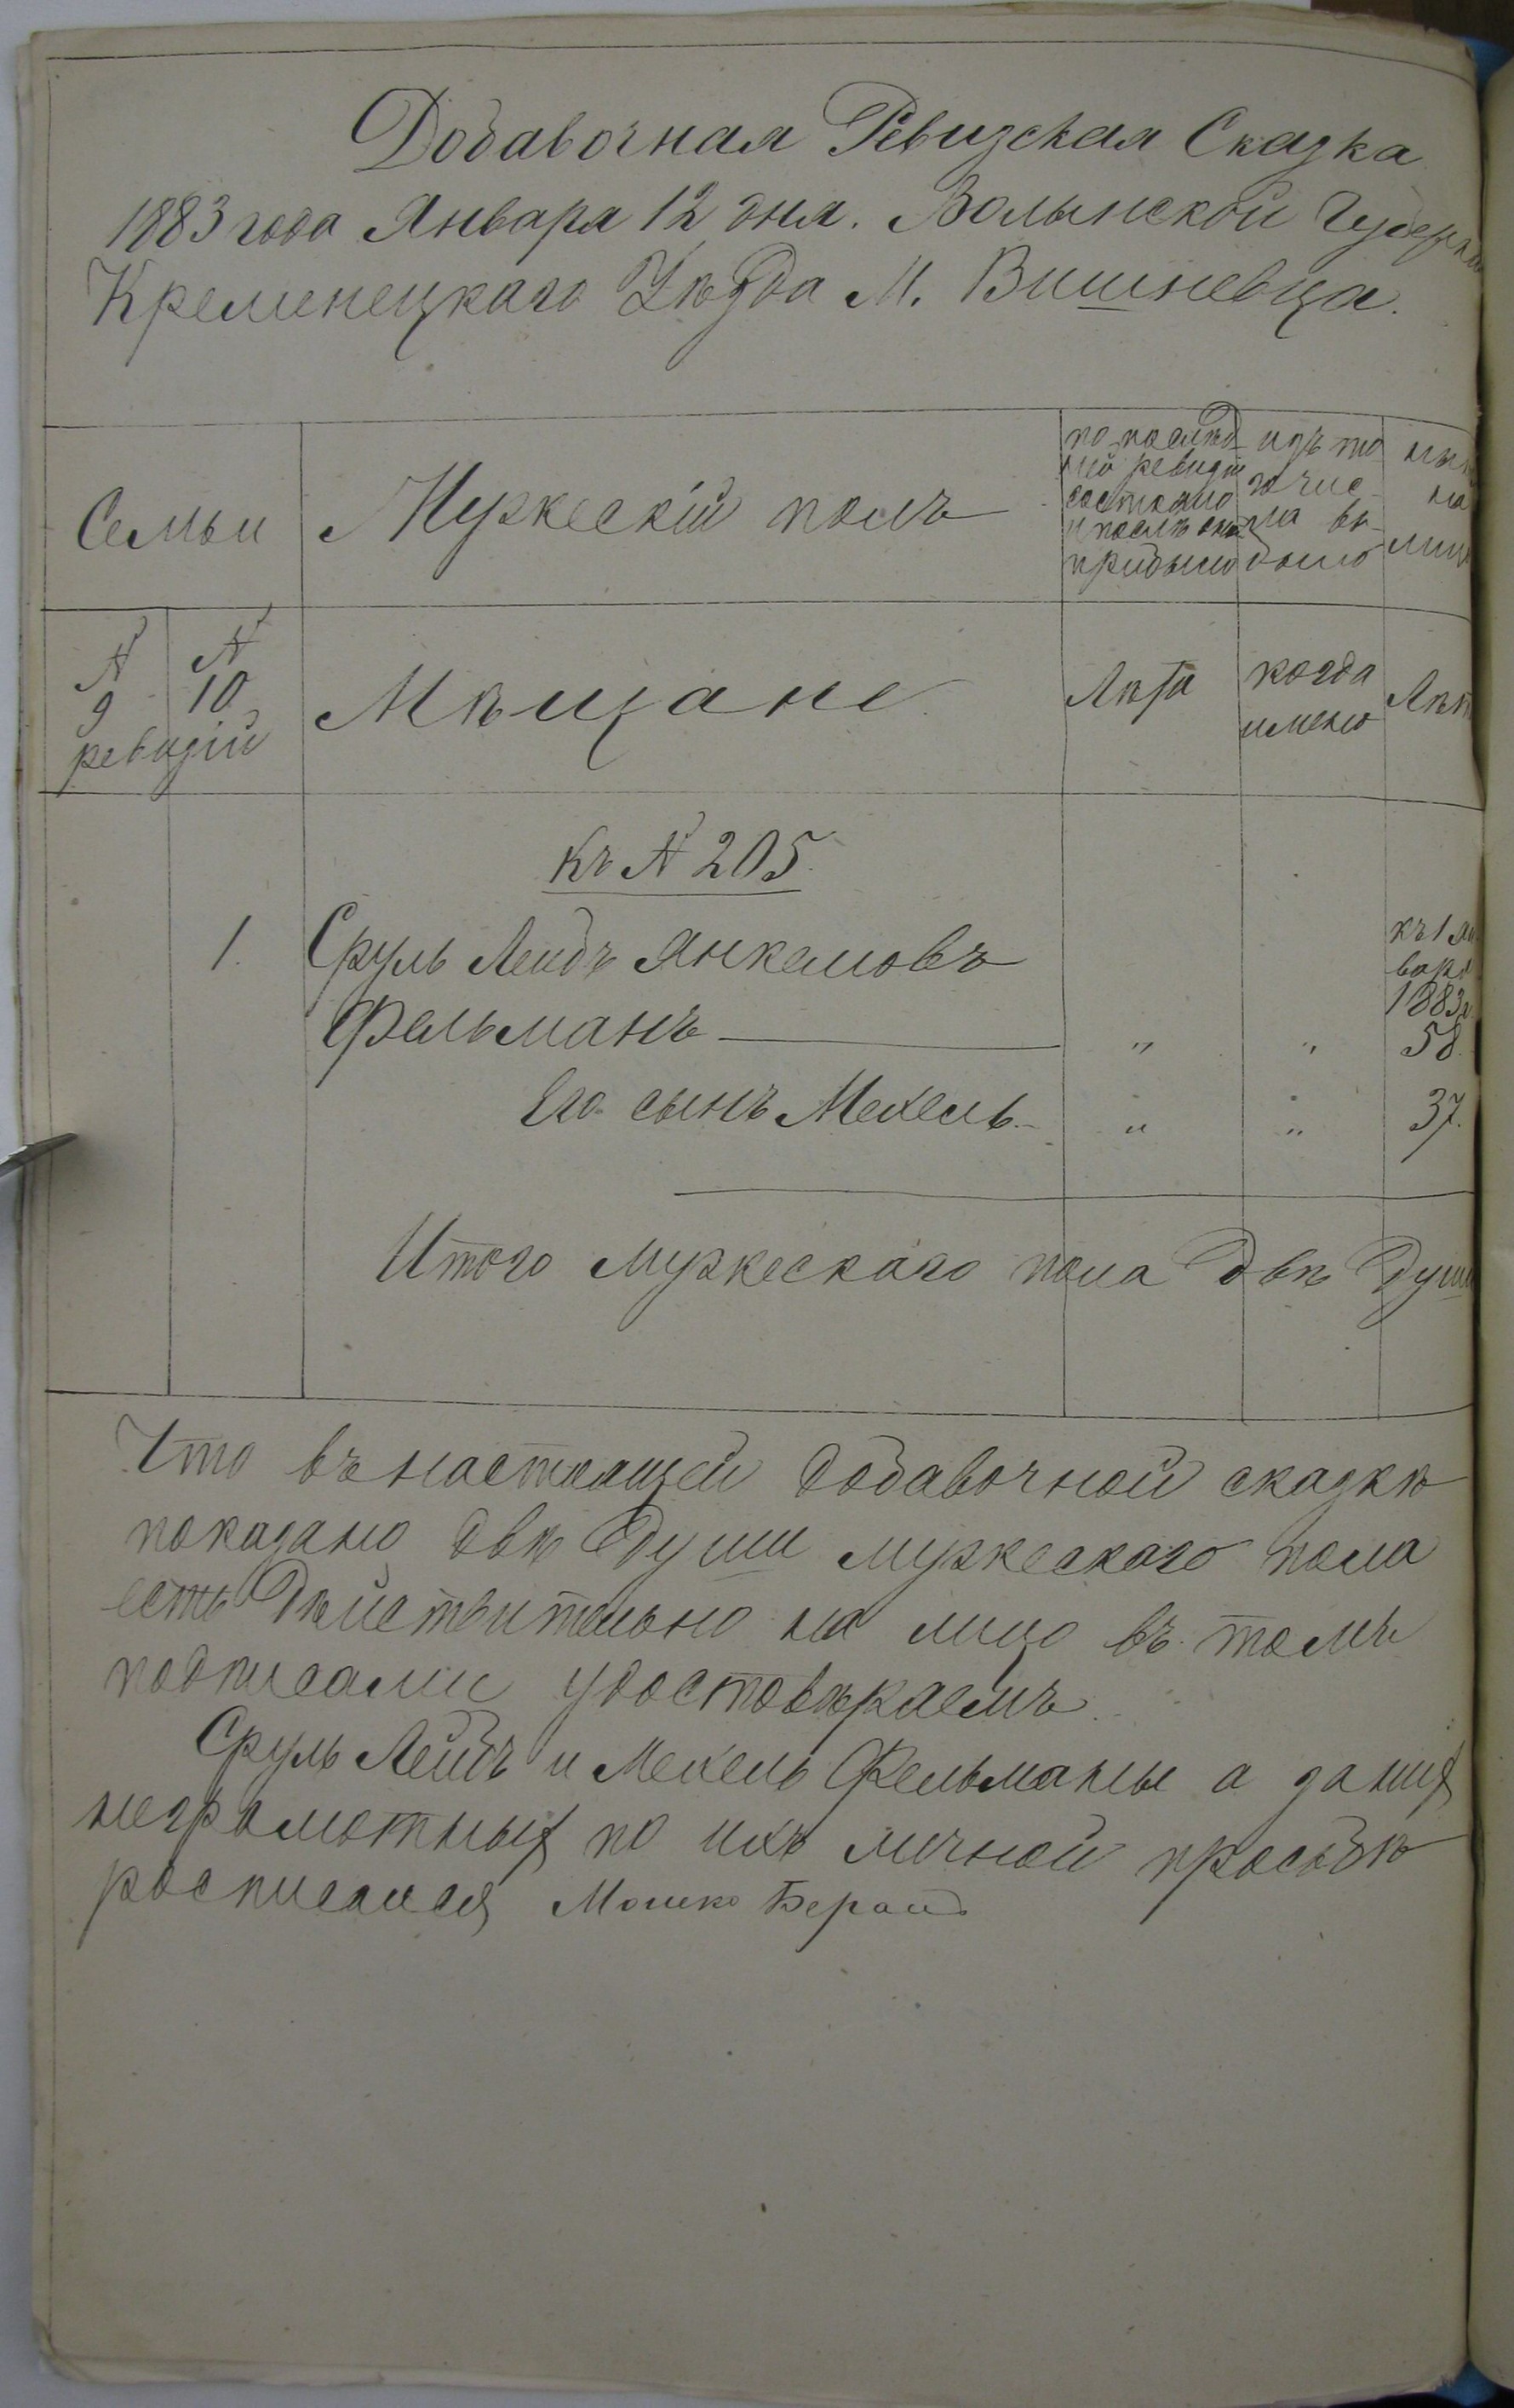 Добавочная Ревизская Сказка
1883 года Января 12 дня. Волынской Губерн
Кременецкаго Уѣзда М. Вишневца.
Семьи
Мужескій полъ
по послѣд
ней ревизіи
состояло
и послѣ оной
прибыло
изъ то
го чис
ла вы
было
нын
на
лиц
№ 9
№ 10
ревизіи
Мѣщане
Лѣта
когда
именно
Лѣт
Къ № 205.
1.
Сруль Лейбъ Янкелювъ
Фельманъ
"
"
къ 1 Ян
варя
1883г
58.
Его сынъ Мехель
"
"
37.
Итого мужескаго пола двѣ души
Что въ настоящей добавочной сказкѣ
показано двѣ души мужескаго пола
есть дѣйствительно на лицо въ томъ
подписами удостовѣряемъ.
Сруль Лейбъ и Мехель Фельманы а за нихъ
неграмотныхъ по ихъ личной просьбѣ
росписался Мошко